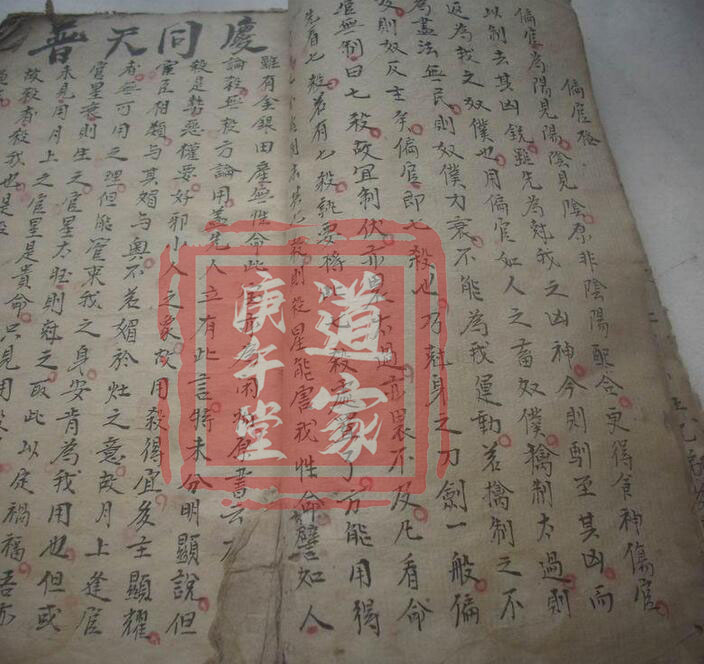 偏官格
偏官為陽見陽陰見陰原非陰陽配合更得食神傷官
以制去其凶銳雖先為尅我之凶神今則馴至其凶而
返為我之奴僕也用偏官如人之畜奴僕擒制太過則
為盡法無民則奴僕力衰不能為我運動若擒制之不
及則奴反主矣偏官即七殺也乃尅身之刀劍一般偏
官無制曰七殺故宜制伏亦畏太過亦畏不及凡看命
先看七殺若有七殺就要將此七殺處置了方能用得
則殺星能害我性命譬如人
普天同慶
雖有金銀田產無性命此書云
論殺無殺方論用蓋先人立有此言特未分明顯說但
殺是勢惡權要好邪小人之象故用殺得宜多主顯耀
官星相類與其媚与奧不若媚於灶之意故月上逢官
者無可用之理但能官束我之身安肯為我用也但或
官星衰則生之官星太旺則尅之取此以定禍福吾亦
未見用月上之官星是貴命只見用殺
故殺者殺我也是殺
道家
庚午堂